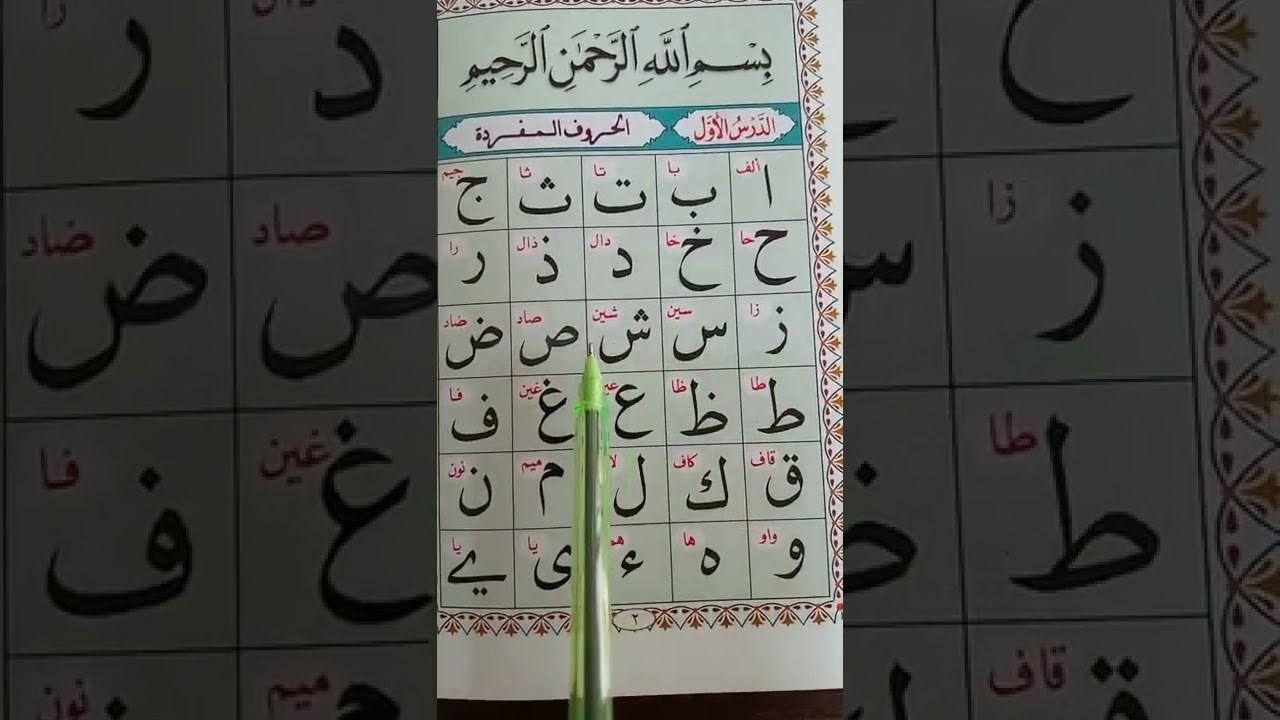 بِسْمِ ٱللَّهِ ٱلرَّحْمَٰنِ ٱلرَّحِيمِ
الدَّرْسُ الْأَوَّل الحروف المفردة
ألف با تا ثا جيم
ا ب ت ث ج
حا خا دال ذال را
ح خ د ذ ر
زا سين شين صاد ضاد
ز س ش ص ض
طا ظا غين فا
ط ظ ع غ ف
قاف كاف ميم نون
ق ك ل م ن
واو ها يا يا
و ه ء ى ے
٢